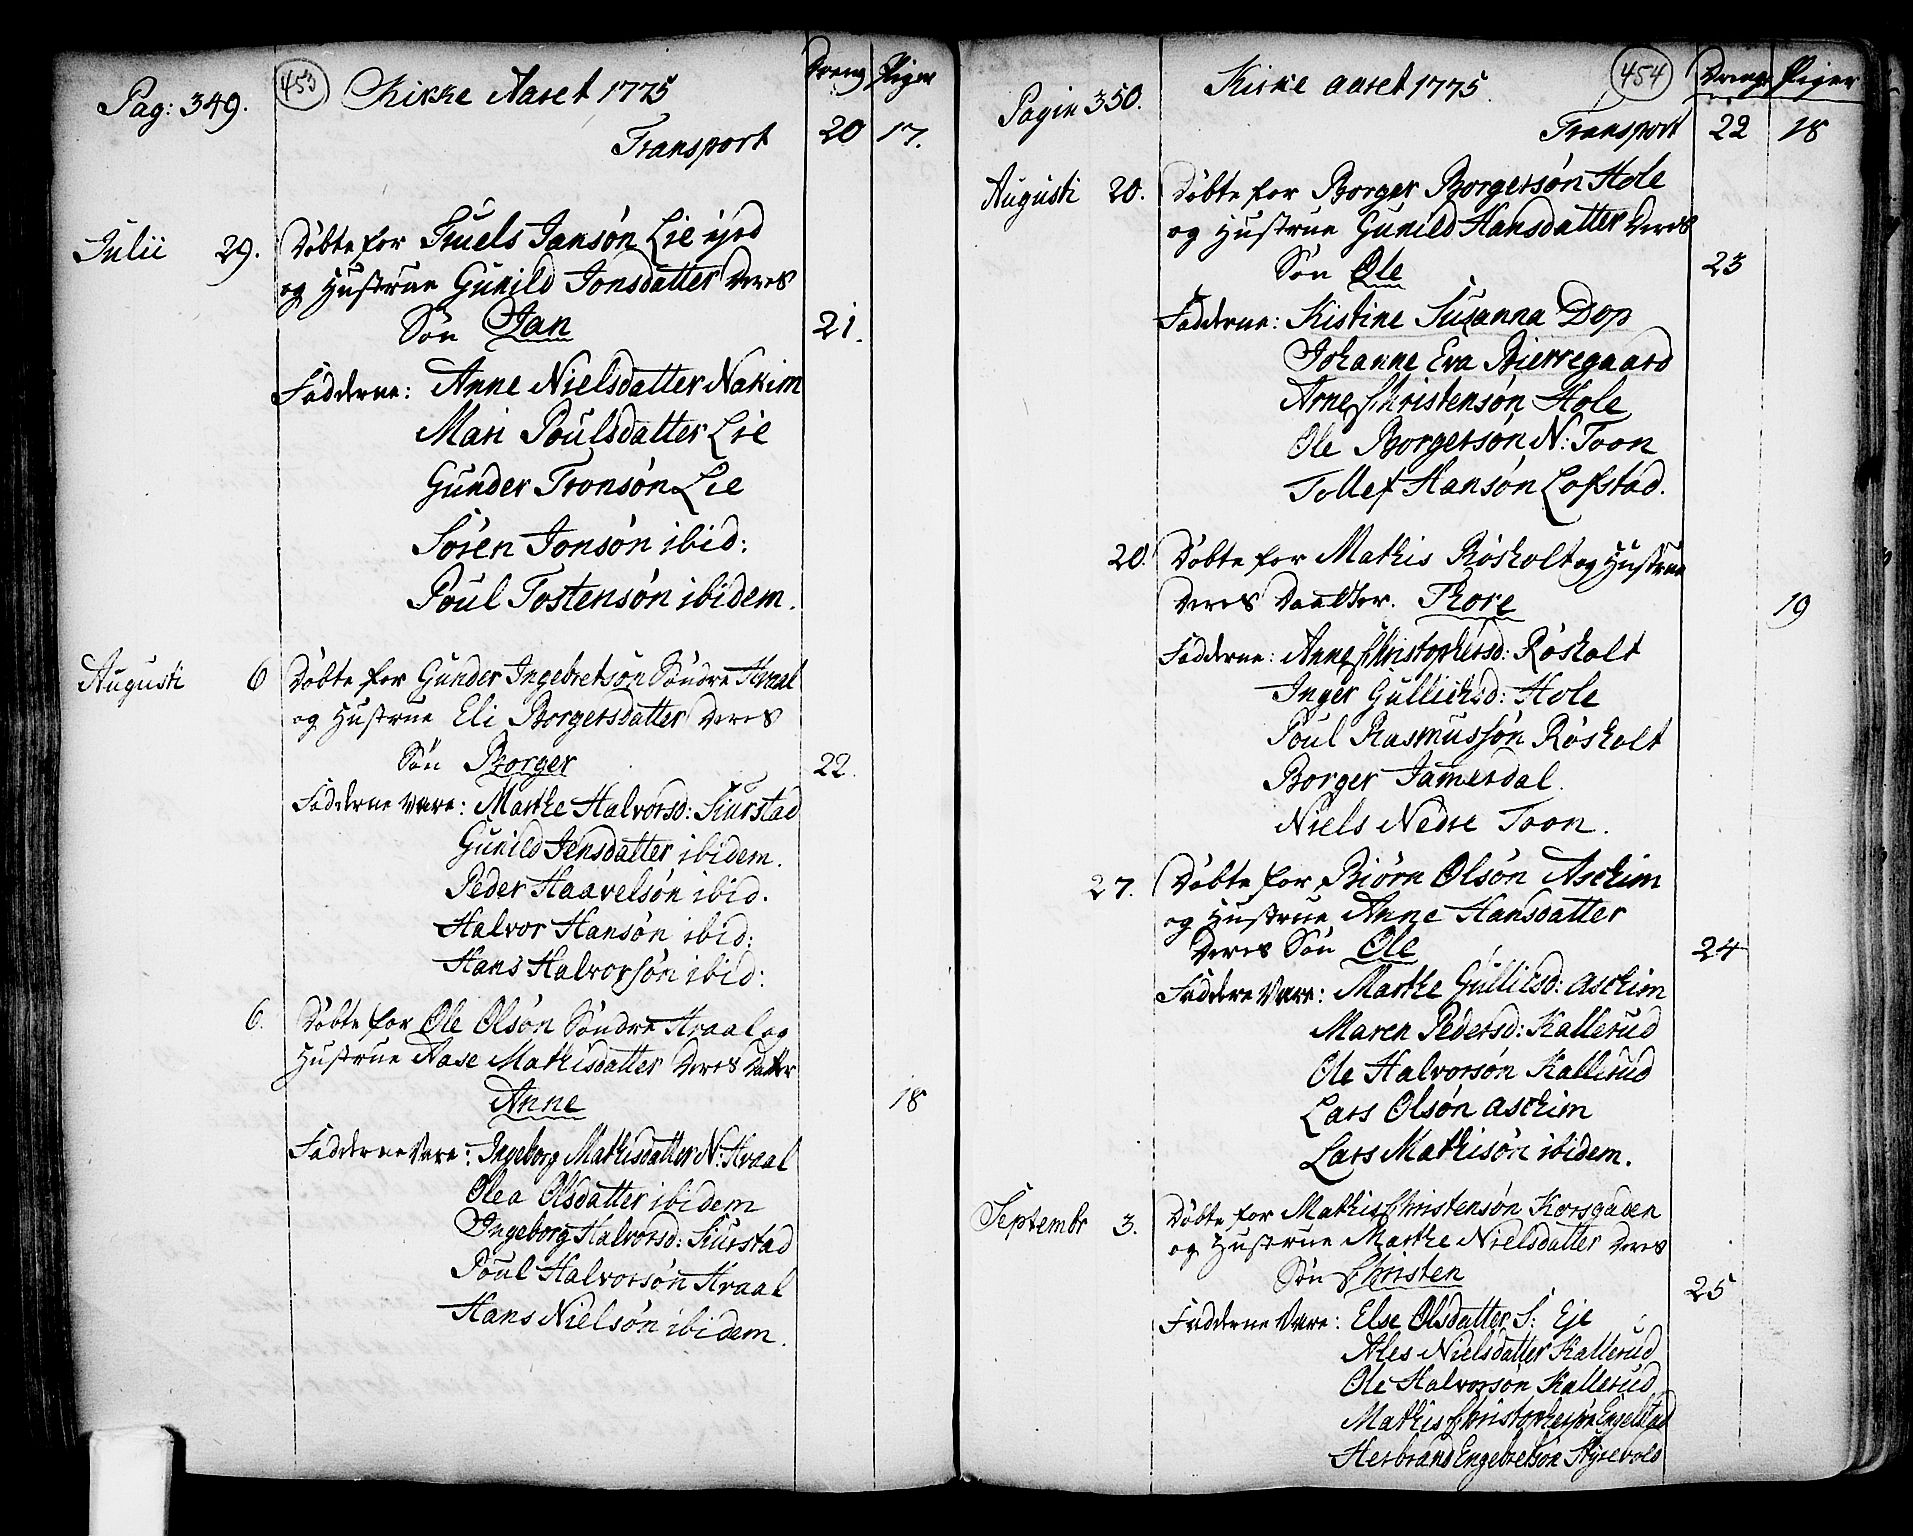 Pag: 349. 453 Kirke Aaret 1775 Dreng Piger
Transport 20 17.
Julii 29. Døbte for Truels Jansøn Lie ejed
og Hustrue Gunild Jonsdatter Deres
Søn Jan 21.
Fadderne: Anne Nielsdatter Nakim
Mari Poulsdatter Lie
Gunder Tronsøn Lie
Sören Jonsøn ibid:
Poul Tostensøn ibidem.
Augusti 6 Døbte for Gunder Ingebretsøn Søndre Kraal
og Hustrue Eli Borgersdatter Deres
Søn Borger 22.
Fadderne vare: Marthe Halvorsd: Skurstad
Gunild Jensdatter ibidem.
Peder Haavelsøn ibid.
Halvor Hansøn ibid:
Hans Halvorsøn ibid:
6. Døbte for Ole Olsøn Søndre Kraal og
Hustrue Aase Mathisdatter Deres Datter
Anne 18
Fadderne Vare: Ingeborg Mathisdatter N: Kraal
Olea Olsdatter ibidem
Ingeborg Halvorsd: Skurstad
Poul Halvorsøn Kraal
Hans Nielsøn ibidem.
Pagin 350. Kirke aaret 1775. 454 Drenge Piger
Transport 22 18
Augusti 20. Døbte for Borger Borgersøn Hole
og Hustrue Gunild Hansdatter Deres
Søn Ole 23
Fadderne: Kistine Susanna Dop
Johanne Eva Bierregaard
Arne Christensøn Hole
Ole Borgersøn N: Toon
Tollef Hansøn Lofstad.
20. Døbte for Mathis Røsholt og Hustrue
Deres Daatter. Thore 19
Fadderne: Anne Christophersd: Røsholt
Inger Gullichsd: Hole
Poul Rasmussøn Røsholt
Borger Jamerdal.
Niels Nedre Toon.
27. Døbte for Biørn Olsøn Aschim
og Hustrue Anne Hansdatter
Deres Søn Ole 24
Faddere Vare: Marthe Gullicsd: aschim
Maren Pedersd: Kallerud
Ole Halvorsøn Kallerud
Lars Olsøn aschim
Lars Mathisøn ibidem.
Septembr 3. Døbte for Mathis Christensøn Korsgaden
og Hustrue Marthe Nielsdatter Deres
Søn Christen 25
Fadderne Vare: Else Olsdatter S: Eje
Ales Nielsdatter Kallerud
Ole Halvorsøn Kallerud
Mathis Christophersøn Engelstad
Herbrand Engebretsøn Styrevold